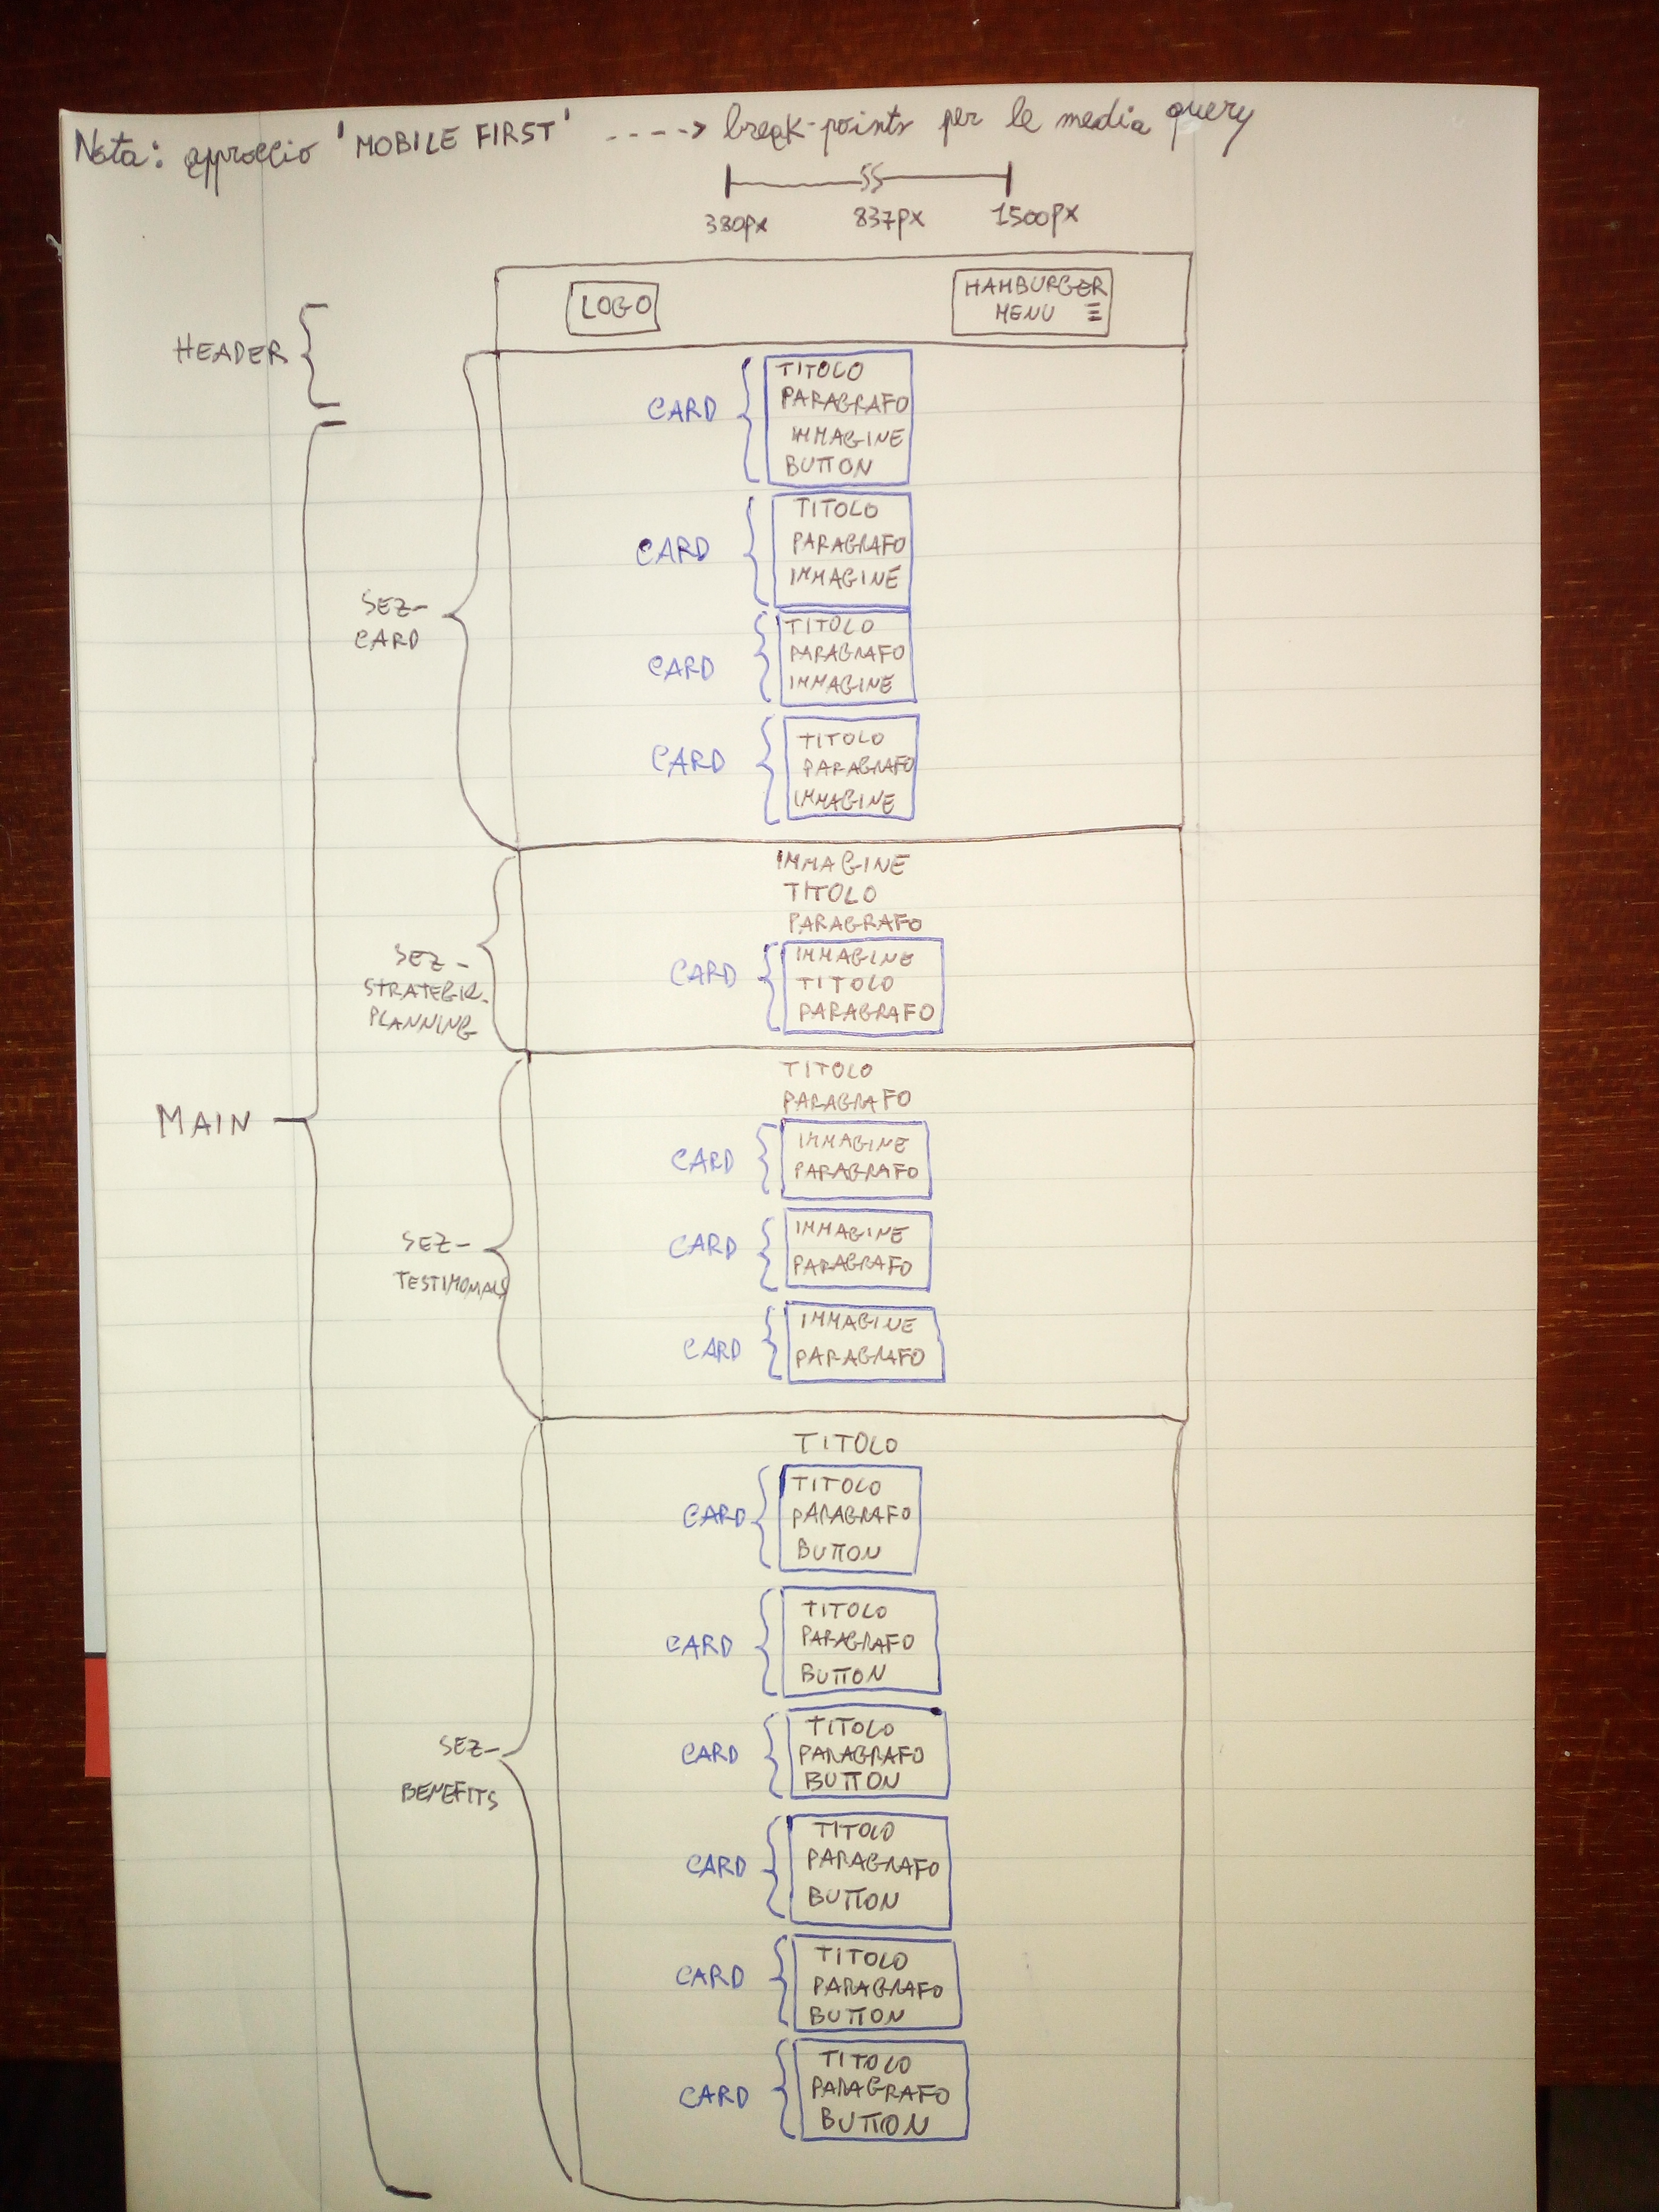 Nota: approccio 'MOBILE FIRST' ----> break-points per le media query
380px 837px 1500px
LOGO
HAMBURGER
MENU
HEADER
CARD
TITOLO
PARAGRAFO
IMMAGINE
BUTTON
CARD
TITOLO
PARAGRAFO
IMMAGINE
SEZ-
CARD
CARD
TITOLO
PARAGRAFO
IMMAGINE
CARD
TITOLO
PARAGRAFO
IMMAGINE
IMMAGINE
TITOLO
PARAGRAFO
SEZ-
STRATEGIC-
PLANNING
CARD
IMMAGINE
TITOLO
PARAGRAFO
MAIN
TITOLO
PARAGRAFO
CARD
IMMAGINE
PARAGRAFO
SEZ-
TESTIMONIALS
CARD
IMMAGINE
PARAGRAFO
CARD
IMMAGINE
PARAGRAFO
TITOLO
CARD
TITOLO
PARAGRAFO
BUTTON
CARD
TITOLO
PARAGRAFO
BUTTON
SEZ-
BENEFITS
CARD
TITOLO
PARAGRAFO
BUTTON
CARD
TITOLO
PARAGRAFO
BUTTON
CARD
TITOLO
PARAGRAFO
BUTTON
CARD
TITOLO
PARAGRAFO
BUTTON